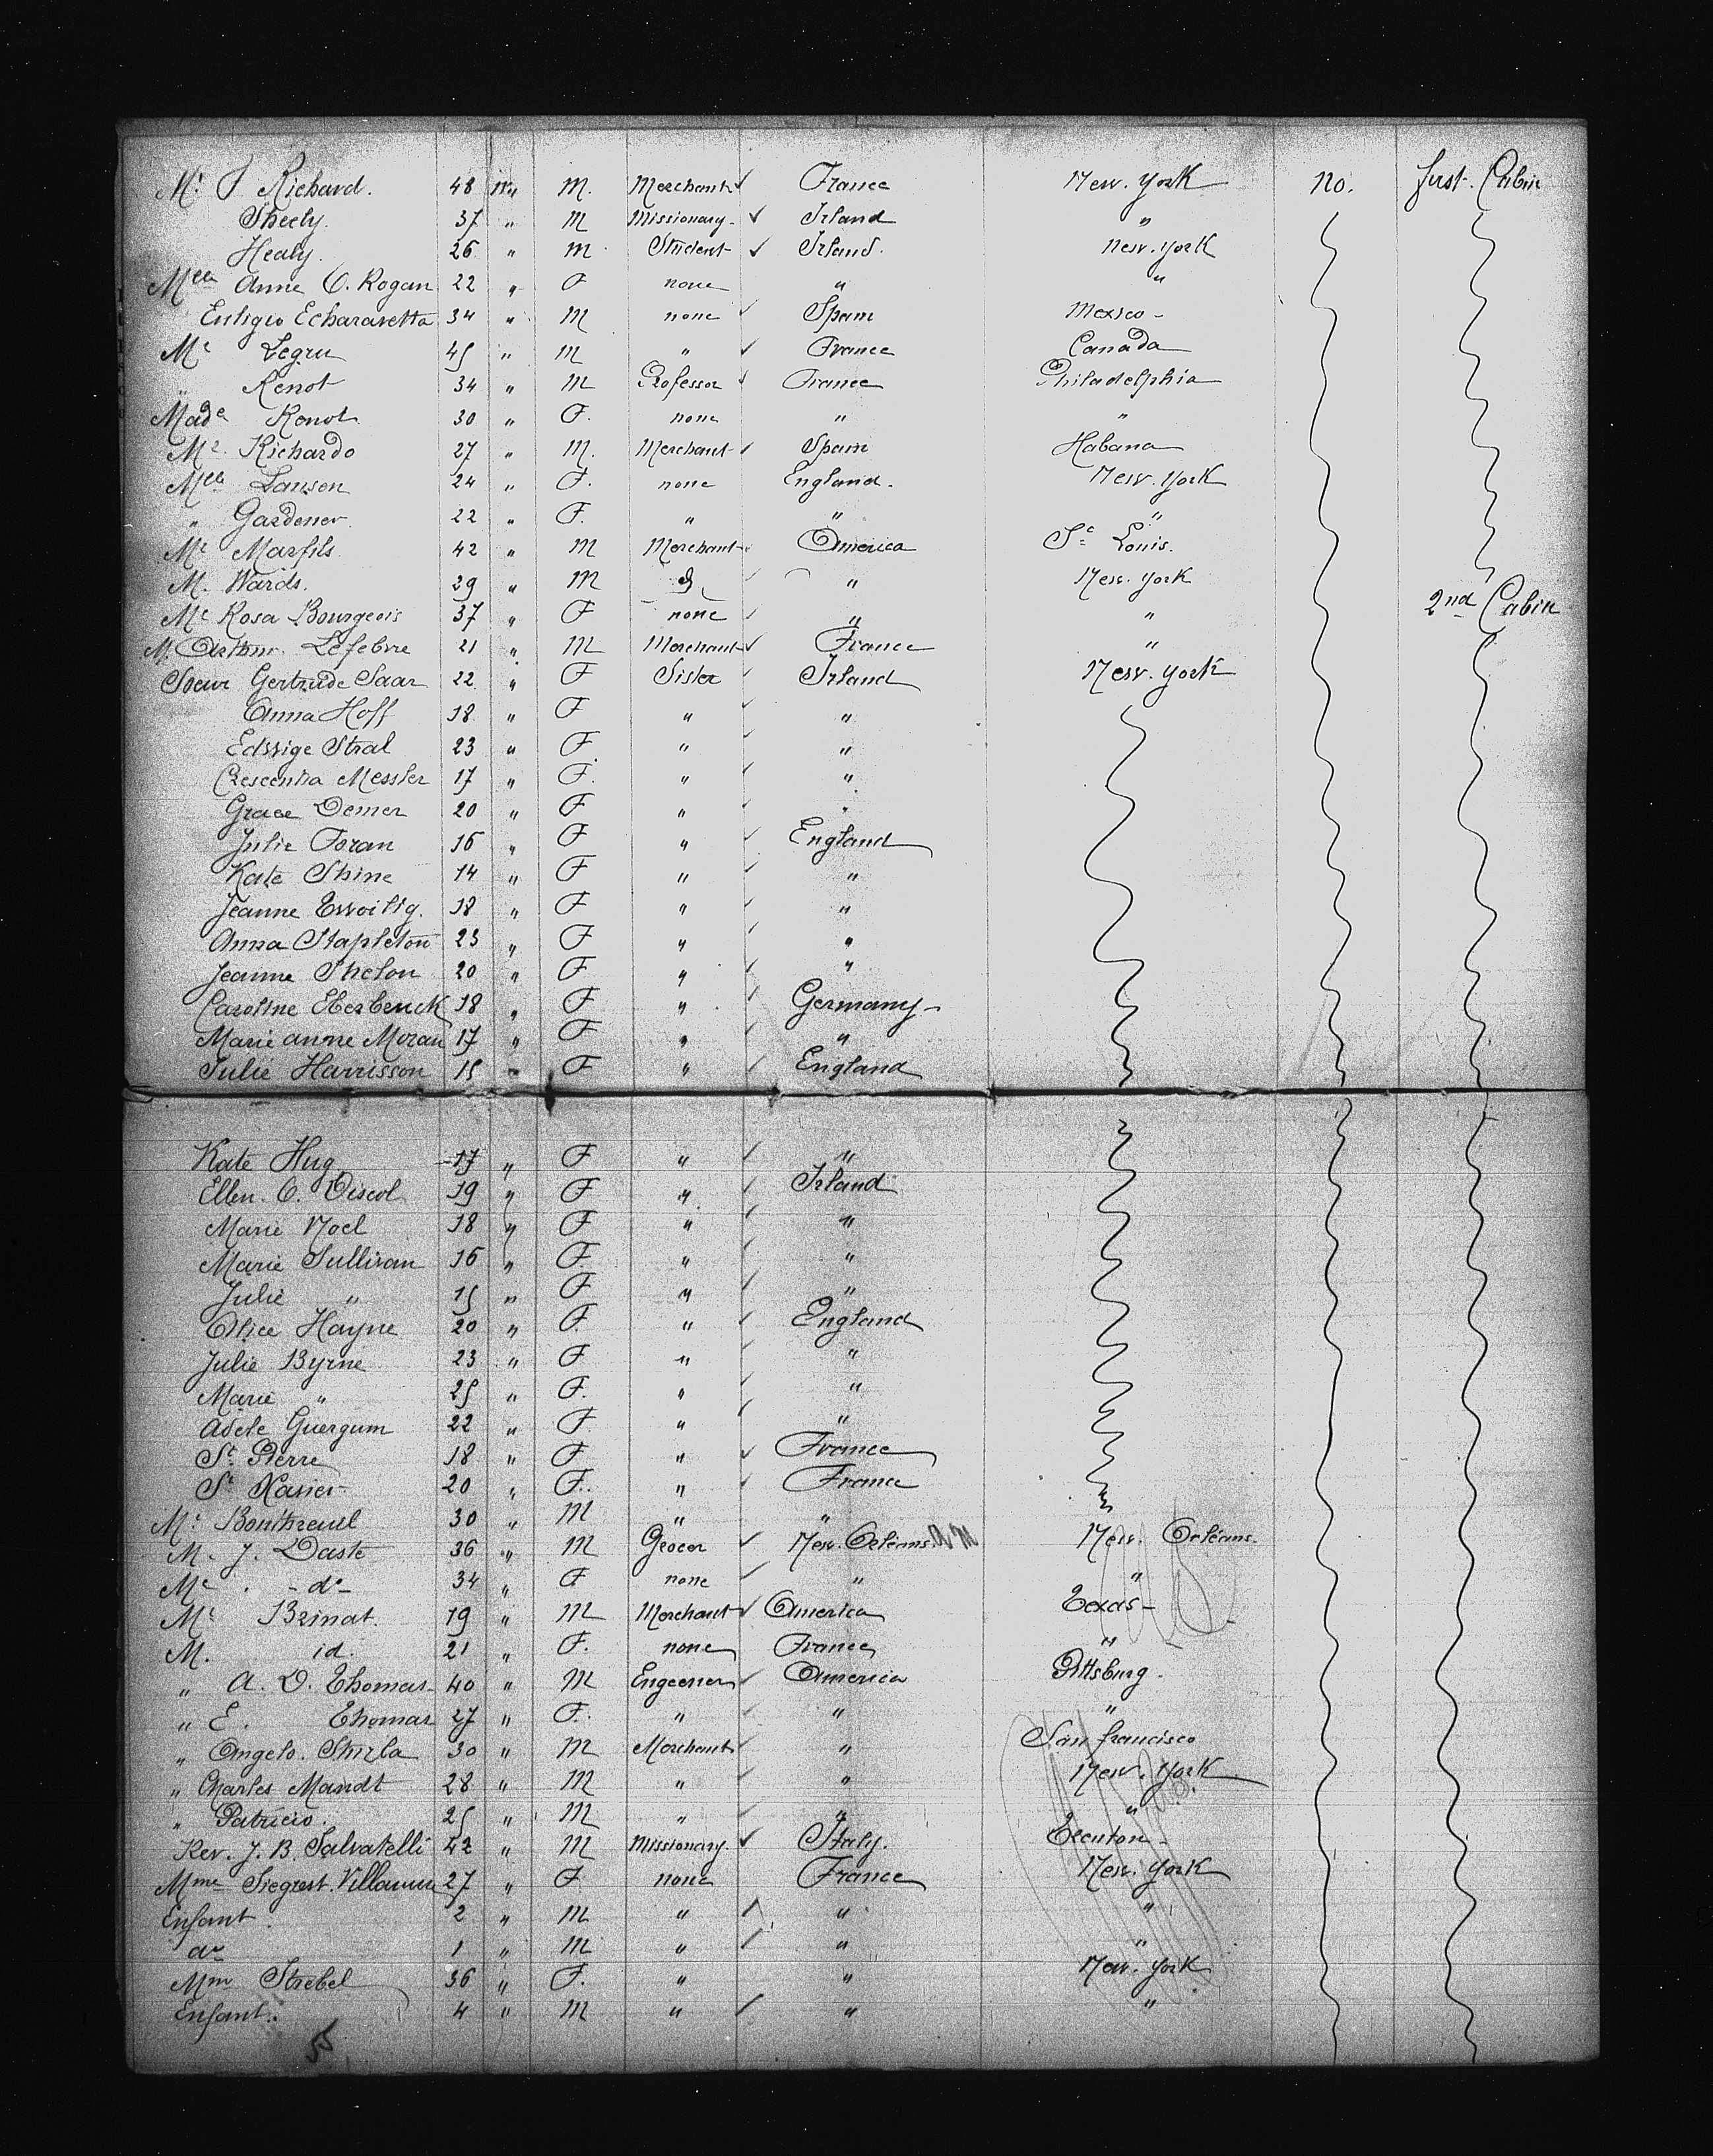 Mr. J Richard. 48 m" M. Merchant France New. York No. first. Cabin
Sheely. 37 " M Missionary Irland "
Healy. 26 " M Student Irland. New. York
Melle Anne O. Rogan 22 " F none " "
Echaravetta 34 " M none Spain Mexico -
Mr Legru 45 " M " France Canada
" Renot 34 " M Professor France Philadelphia
Made Renot 30 " F. none " "
Mr. Richardo 27 " M. Merchant Spain Habana
Melle Lanson 24 " F. none England. New. York
" Gardener 22 " F. " " "
Mr Marfils 42 " M Merchant America St Louis.
M. Wards. 29 " M " New. York
Me Rosa Bourgeois 37 " F none " " 2nd Cabin
M. Arthur. Lefebvre 21 " M Merchant France "
Soeur Gertrude Saar 22 " F Sister Irland New. York
Anna Hoff 18 " F " "
Edwige Stral 23 " F " "
Crescentia Messler 17 " F. " "
Grace Demer 20 " F " "
Julie Foran 16 " F " England
Kate Shine 14 " F " "
Jeanne 18 " F " "
Anna Stapleton 23 " F " "
Jeanne Shelon 20 " F " "
Caroline 18 " F " Germany -
Marie anne Moran 17 " F " "
Julie Harrisson 15 " F " England
Kate Hug 17 " F " "
Ellen. O. Discol 19 " F " Irland
Marie Noel 18 " F " "
Marie Sullivan 16 " F " "
Julie " 15 " F " "
Alice Hayne 20 " F " England
Julie Byrne 23 " F " "
Marie " 25 " F. " "
Adele Guergum 22 " F " "
St. Pierre 18 " F " France
St Xavier 20 " F. " France
Mr. Bonthreuil 30 " M " "
M. J. Daste 36 " M Grocer New. Orléans New. Orléans.
Me - do - 34 " F none " "
Mr Brinat. 19 " M Merchant America Texas -
M. id. 21 " F. none France "
" A. D. Thomas 40 " M Engeener America Pittsburg.
" E. Thomas 27 " F. " " "
" Angelo. 30 " M Merchant " San francisco
" Charles Mandt 28 " M " " New. York
" Patricio 25 " M " " "
Rev. J. B. Salvatelli 42 " M Missionary. Italy. Trenton -
Mme Siegrest. 27 " F. none France New. York
Enfant. 2 " M " " "
do 1 " M " " "
Mme Strebel 36 " F. " " New. York
Enfant. 4 " M " " "